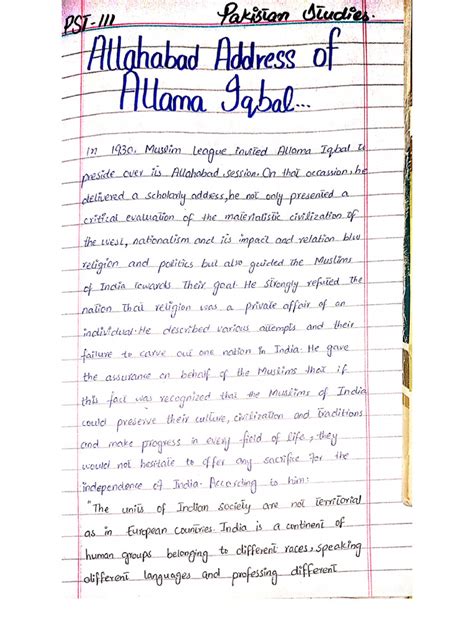 PST-III Pakistan Studies.
Allahabad Address of
Allama Iqbal...
In 1930, Muslim League invited Allama Iqbal to
preside over its Allahabad session. On that occassion, he
delivered a scholarly address, he not only presented a
critical evaluation of the materialistic civilization of
the west, nationalism and its impact and relation b/w
religion and politics but also guided the Muslims
of India towards their goal. He strongly refuted the
nation that religion was a private affair of an
individual. He described various attempts and their
failure to carve out one nation in India. He gave
the assurance on behalf of the Muslims that if
this fact was recognized that the Muslims of India
could preserve their culture, civilization and traditions
and make progress in every field of life, they
would not hesitate to offer any sacrifice for the
independence of India. According to him:
"The units of Indian society are not territorial
as in European countries. India is a continent of
human groups belonging to different races, speaking
different languages and professing different